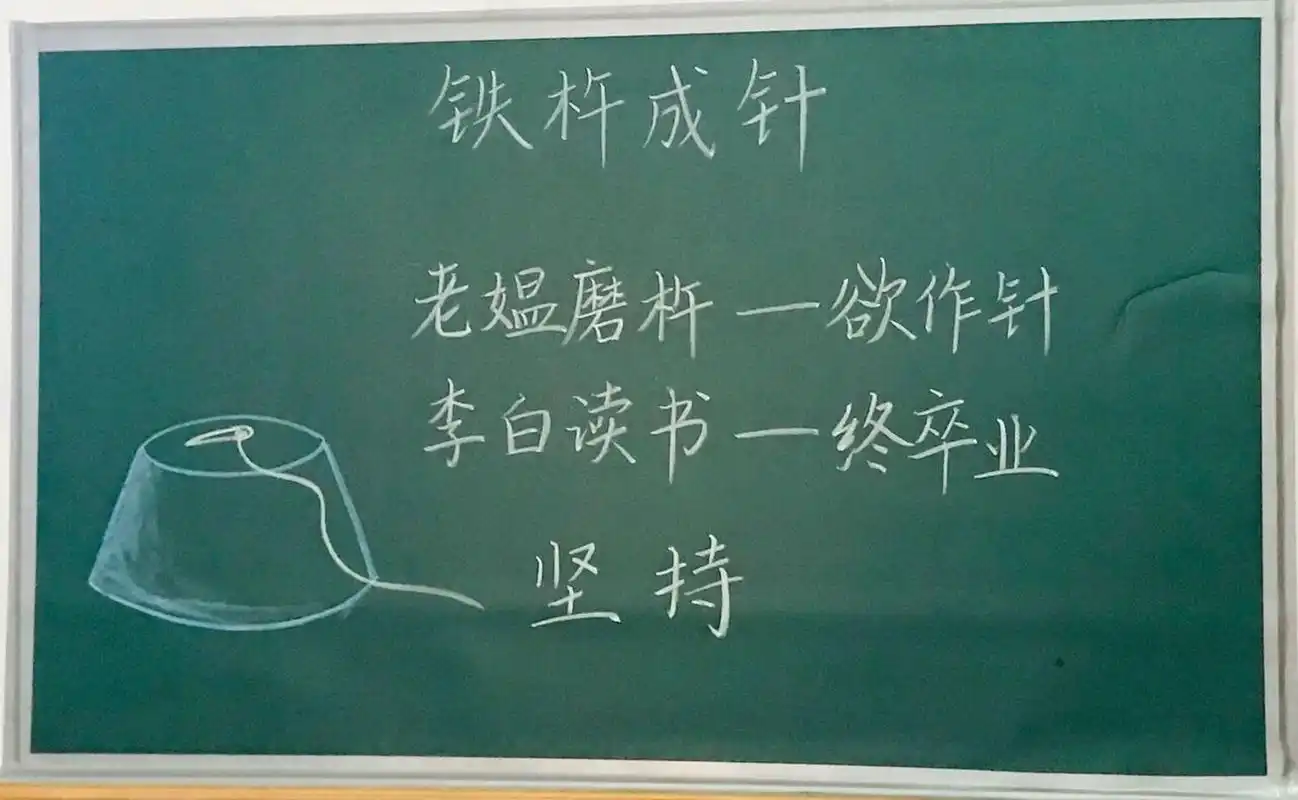 铁杵成针
老媪磨杵—欲作针
李白读书—终卒业
坚持